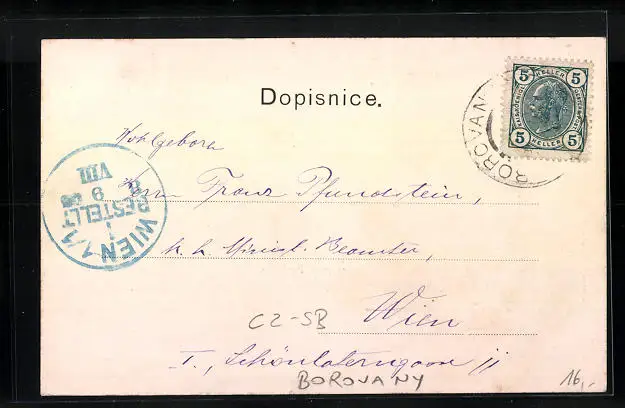 Dopisnice.
5 HELLER 5
5 HELLER 5
BOROVAN
Wohlgeborn
Herrn Franz Pfundstein,
k. k. Beamter,
Wien
I., Schönlaterngasse 11
WIEN 1/1
BESTELLT
9
VIII
CZ-SB
BOROVANY
16,-